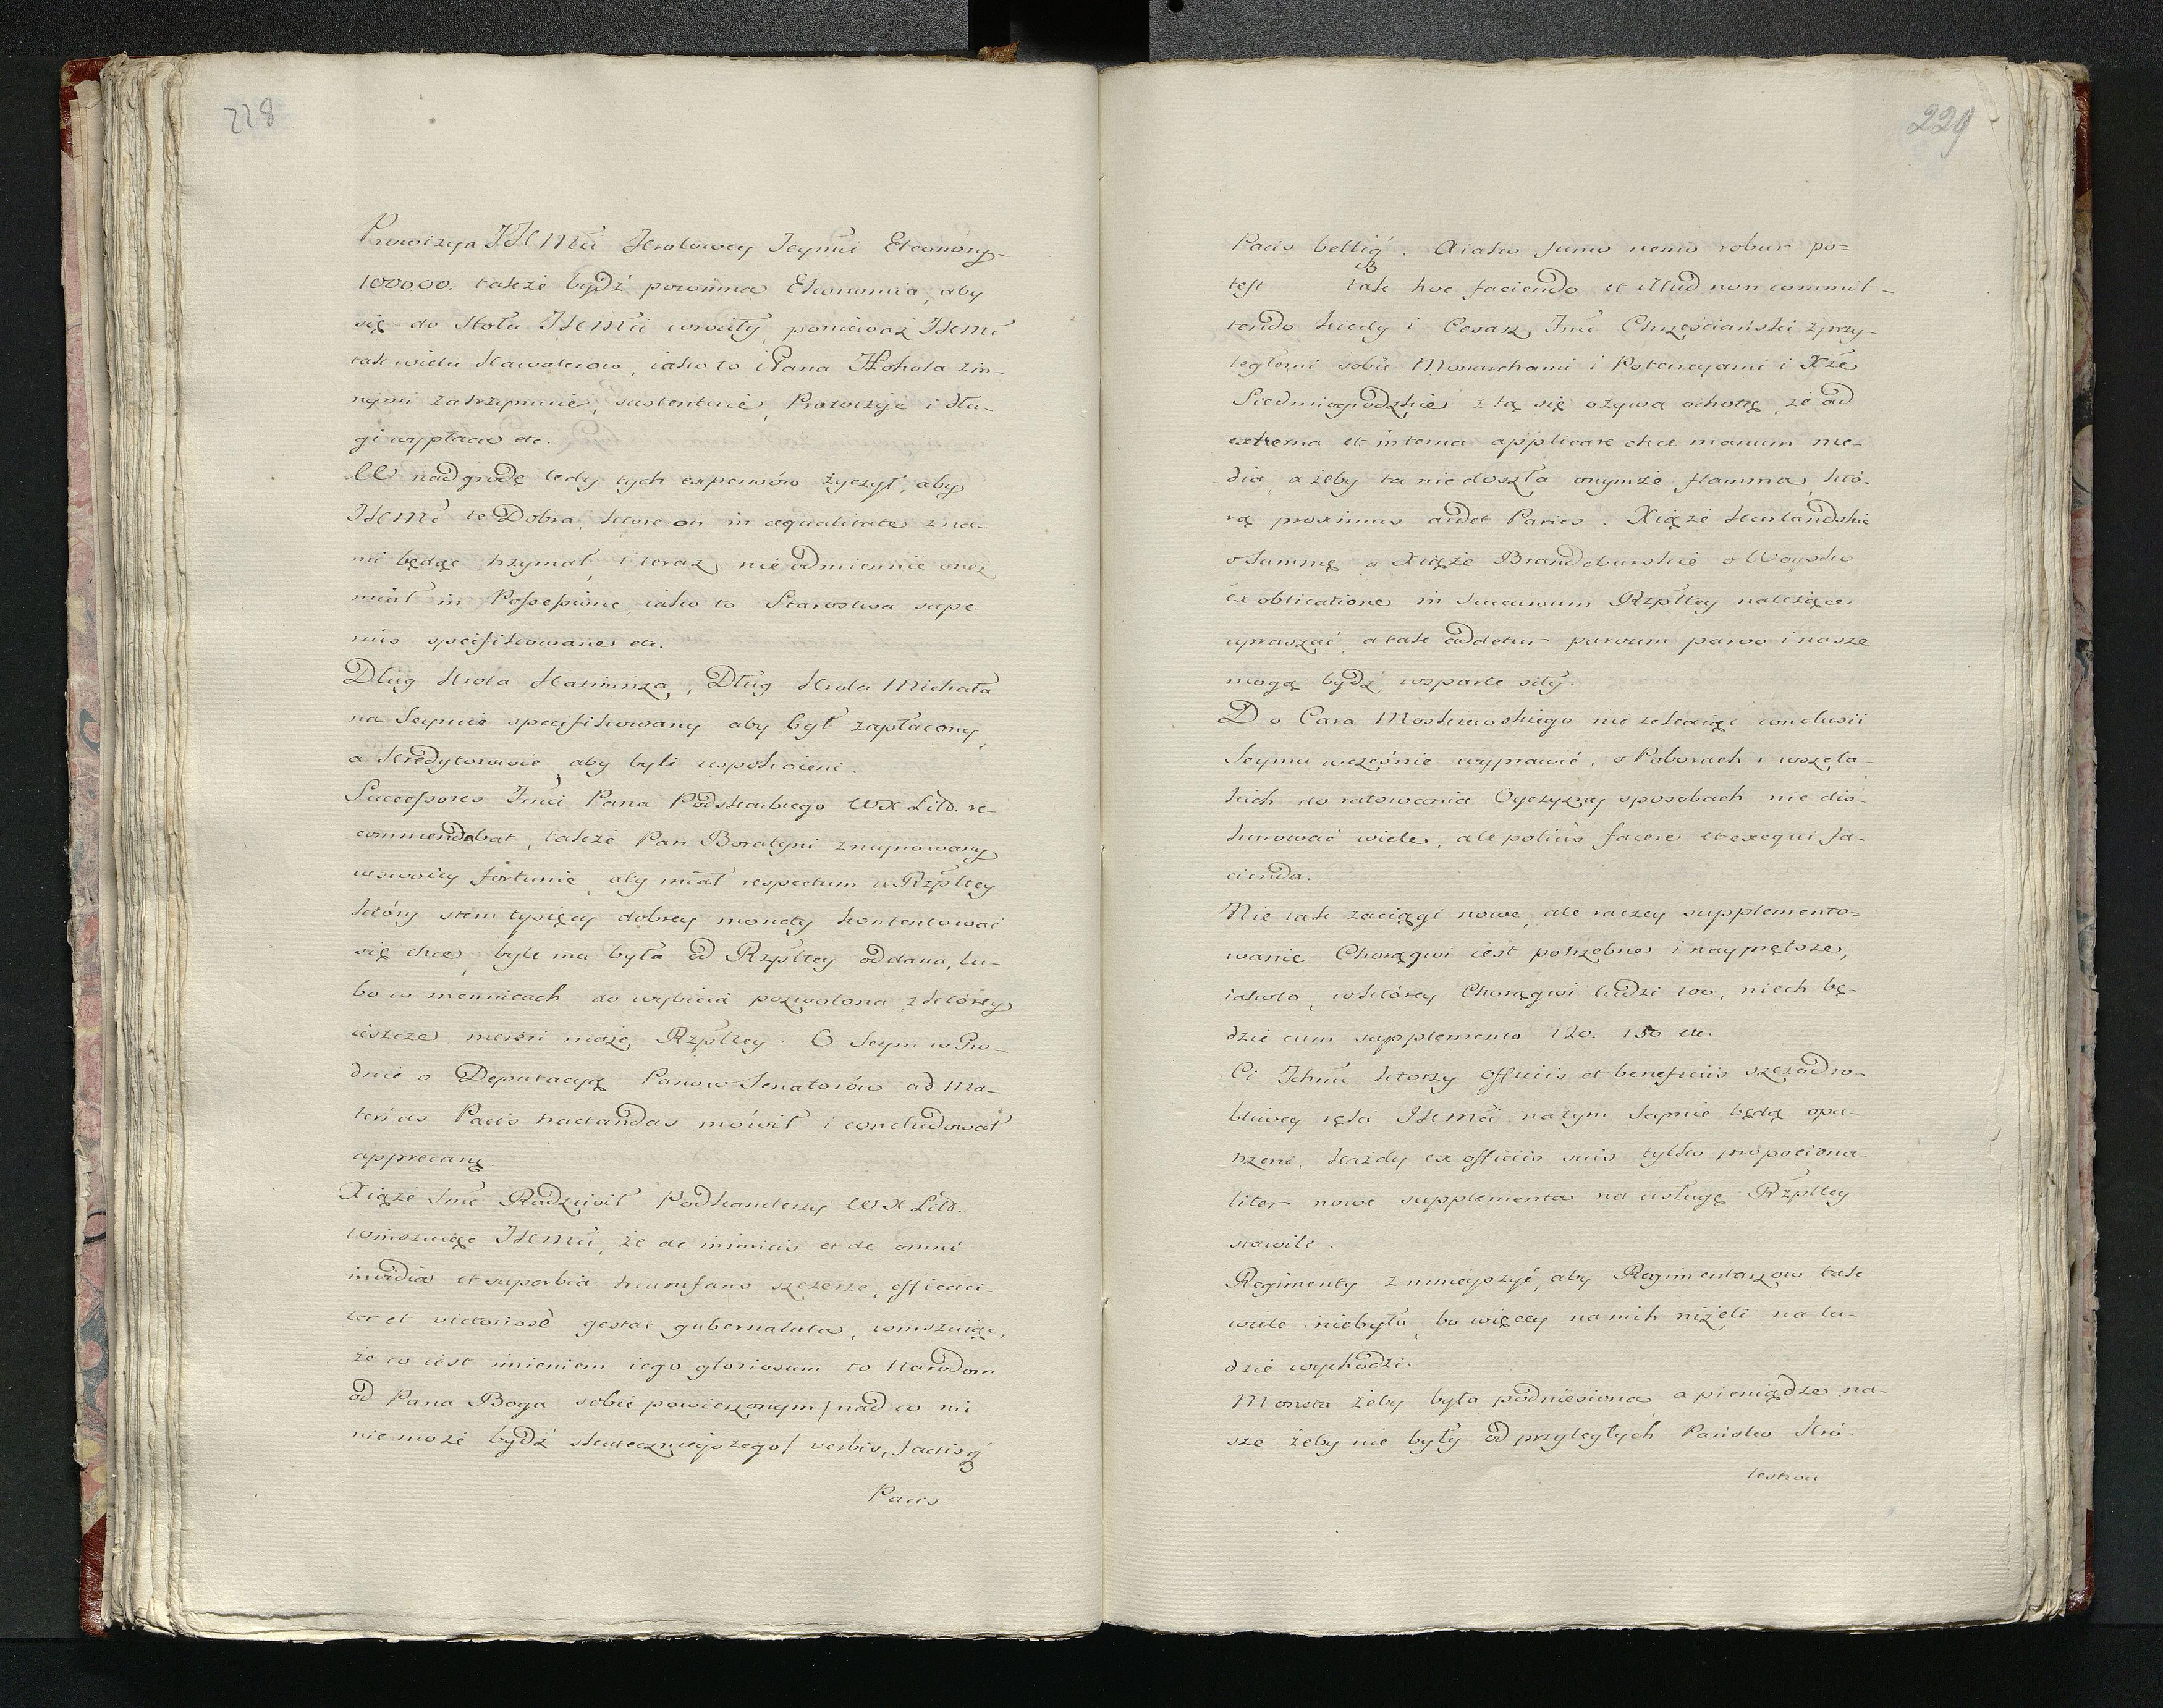 228
Prowizya JKMći Krolowey Jeymći Eleonory
100000. takze bydź powinna Ekonomia, aby
się do Stołu JKMći wrociły, poniewaź JKMć
tak wielu Kawalerow, iako to i Pana Hohola z in-
nymi zatrzymuie, sustentuie, Prowizye i dłu-
gi wypłaca etc.
W nadgrodę tedy tych expensów życzył, aby
JKMć te Dobra, ktore on in æqualitate z na-
mi będąc trzymał, i teraz nieodmiennie oneż
miał in Possessione, iako to Starostwa supe-
rius specifikowane etc.
Dług Krola Kazimirza, Dług Krola Michała
na Seymie specifikowany aby był zapłacony,
a Kredytorowie, aby byli uspokoieni.
Successores Jmći Pana Podskarbiego WX Litt. re-
commendabat, takze Pan Boratyni zruynowany
w swoiey fortunie, aby miał respectum u Rzpltey
który stem tysięcy dobrey monety kontentować
się chce, byle mu była od Rzpltey oddana, lu-
bo w mennicach do wybicia pozwolona, z ktorey
ieszcze mereri moze Rzpltey. O Seym w Gro-
dnie o Deputacyą Panow Senatorów ad Ma-
terias Pacis tractandas mówił i concludował
apprecans.
Xiąże Jmć Radziwił Podkanclerzy WX Litt.
winszuiąc JKMći, że de inimicis et de omni
invidia et superbia triumfans szczerze, efficaci-
ter et victoriosè gestat gubernacula, winszuiąc,
że co iest imieniem iego gloriosum to Narodom
od Pana Boga sobie powierzonym / nad co nic
nie może bydź skutecznieyszego / verbis, factisq́ȝ
Pacis

229
Pacis belliq́ȝ. A iako sums nemo robur po-
test tak hoc faciendo et illud non commit-
tendo kiedy i Cesarz Jmć Chrześciański z przy-
ległemi sobie Monarchami i Potencyami i Xże
Siedmiogrodzkie z tą się ozywa ochotą, że ad
externa et interna applicare chce manum me-
dia, a żeby ta nie doszła onymże flamma, któ-
rą proximus ardet Paries. Xiąże Kurlandzkie
o Summę a Xiąże Brandeburskie o Woysko
ex obligatione in Succursum Rzpltey należące
upraszać, a tak addetur parvum parvo i nasze
mogą bydź wsparte siły.
Do Cara Moskiewskiego nie zekaiąc conclusii
Seymu wcześnie wyprawić, o Poborach i wszela-
kich do ratowania Oyczyzny sposobach nie dis-
kurować wiele, ale potius facere et exequi fa-
cienda.
Nie tak zaciągi nowe, ale raczey supplemento-
wanie Chorągwi iest potrzebne i nayprętsze,
iakoto, w ktorey Chorągwi ludzi 100, niech bę-
dzie cum supplemento 120. 150 etc.
Ci Ichmć ktorzy officiis et beneficiis szczodro-
bliwey ręki JKMći na tym Seymie będą opa-
trzeni, każdy ex officiis suis tylko propociona-
liter nowe supplementa na usługę Rzpltey
stawili.
Regimenty zmnieyszyć, aby Regimentarzow tak
wiele niebyło, bo więcey na nich niżeli na lu-
dzie wychodzi.
Moneta żeby była podniesiona a pieniądze na-
sze żeby nie były od przyległych Państw Kró-
lestwu